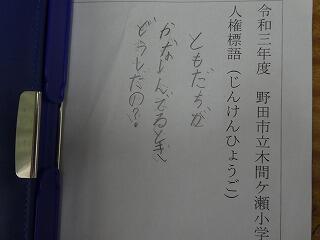 令和三年度　野田市立木間ケ瀬小学
人権標語（じんけんひょうご）
ともだちが
かなしんでるとき
どうしたの？